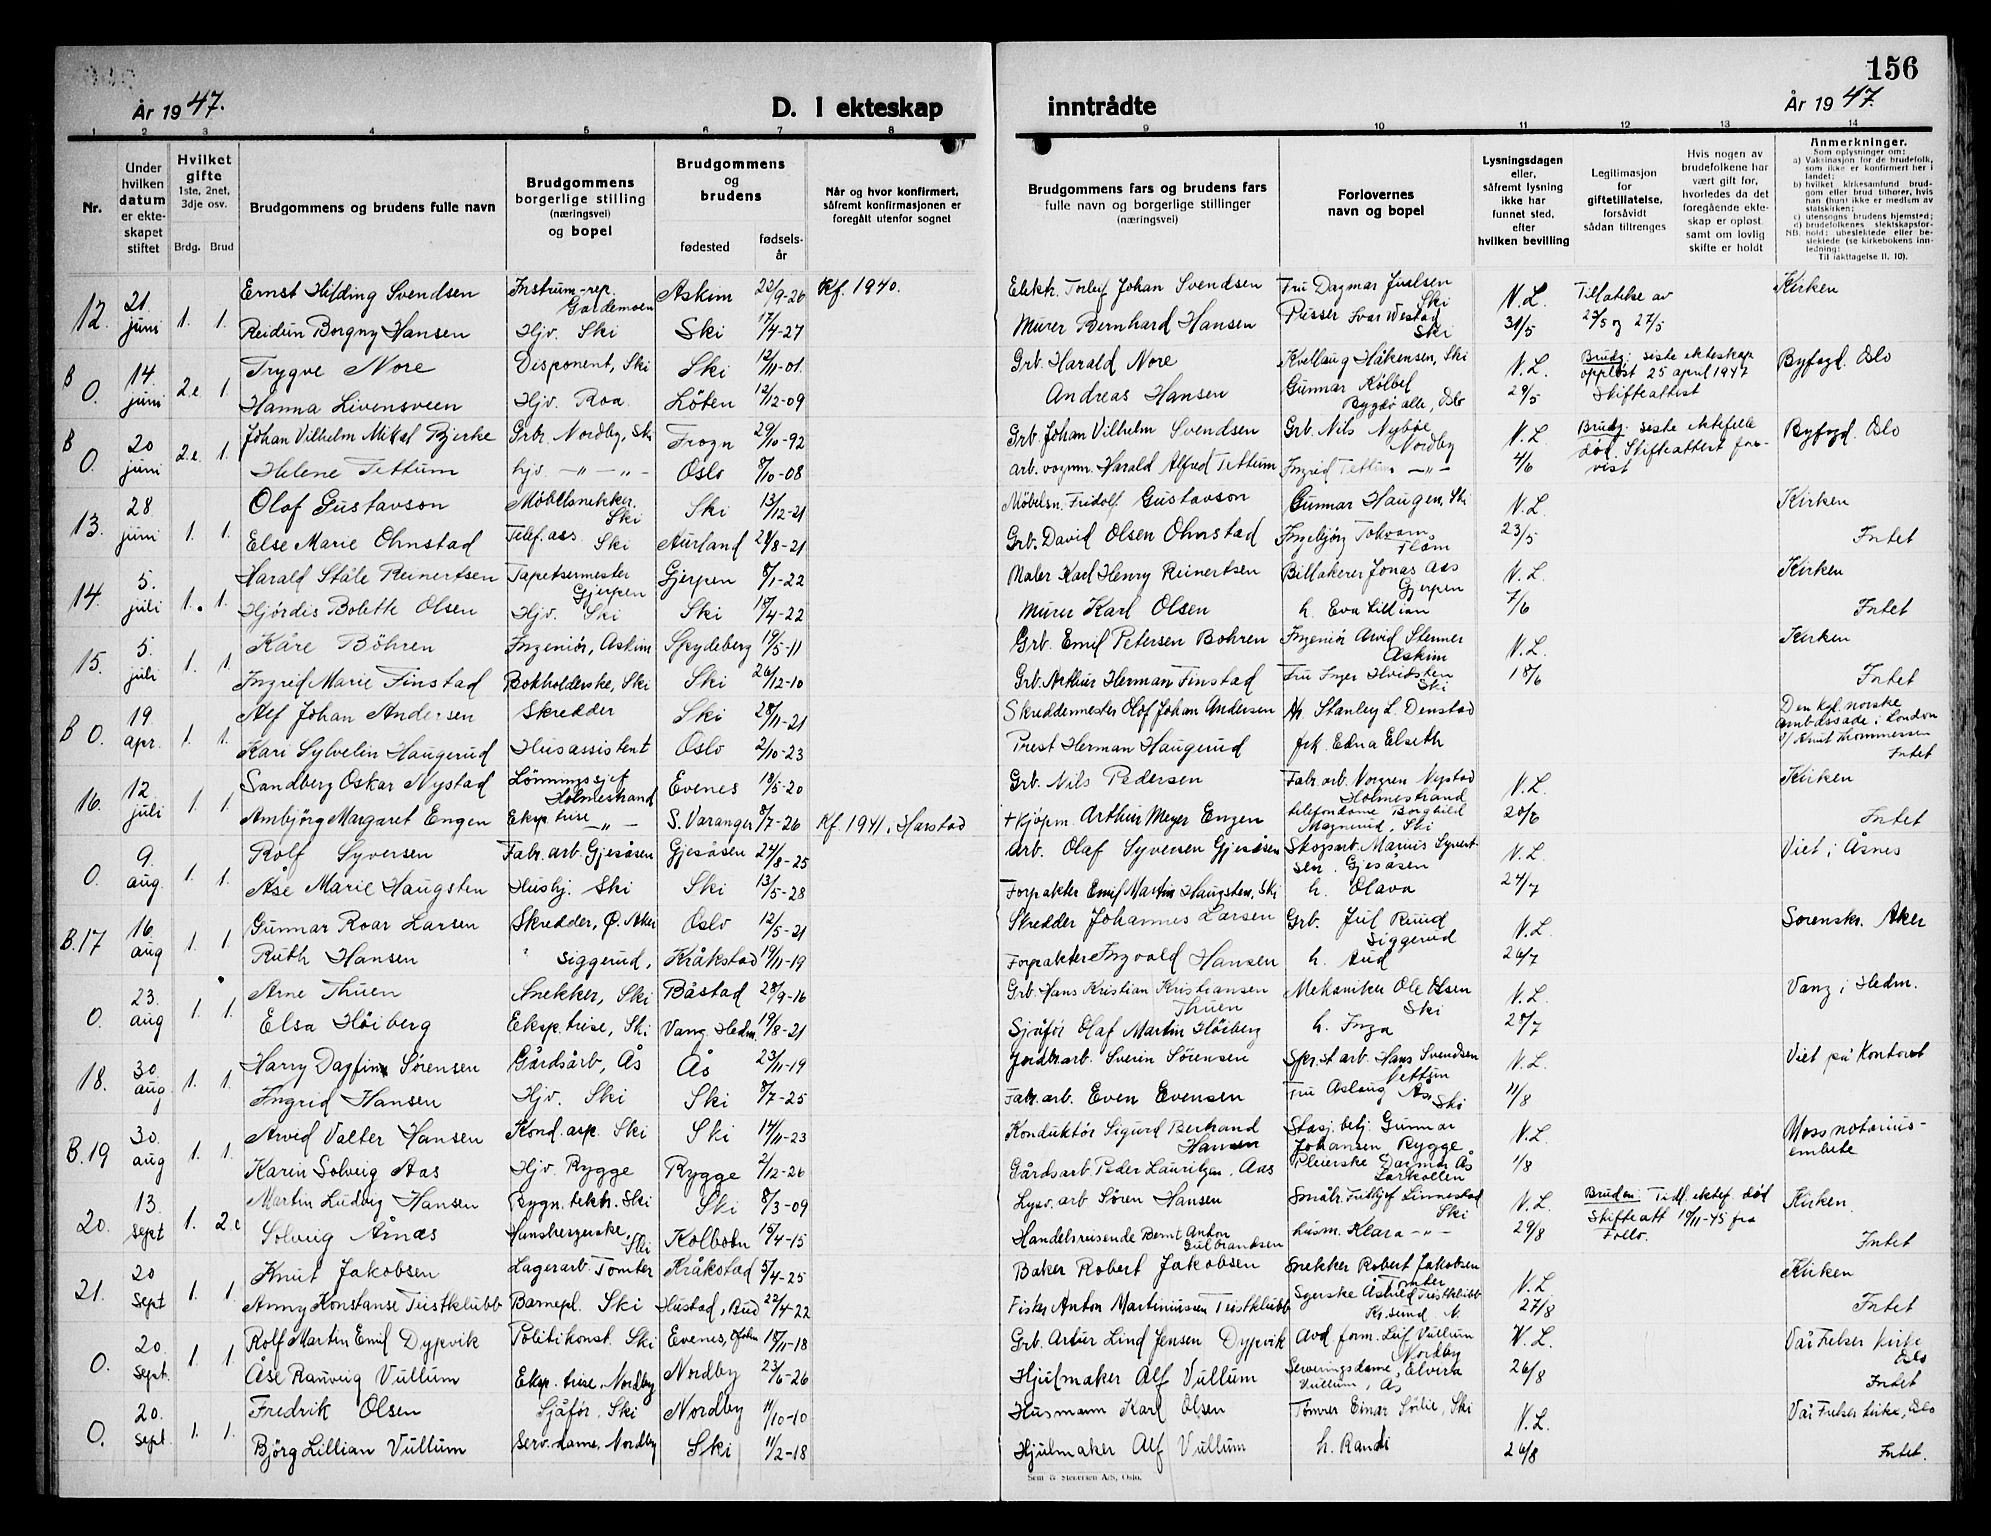 156
År 1947.
D. I ekteskap inntrådte
År 1947.
1 2 3 4 5 6 7 8 9 10 11 12 13 14
Nr.
Under hvilken datum er ekteskapet stiftet
Hvilket gifte 1ste, 2net, 3dje osv.
Brdg. Brud
Brudgommens og brudens fulle navn
Brudgommens borgerlige stilling (næringsvei) og bopel
Brudgommens og brudens
fødested
fødselsår
Når og hvor konfirmert, såfremt konfirmasjonen er foregått utenfor sognet
Brudgommens fars og brudens fars fulle navn og borgerlige stillinger (næringsvei)
Forlovernes navn og bopel
Lysningsdagen eller, såfremt lysning ikke har funnet sted, efter hvilken bevilling
Legitimasjon for giftetillatelse, forsåvidt sådan tiltrenges
Hvis nogen av brudefolkene har vært gift før, hvorledes da det foregående ekteskap er opløst samt om lovlig skifte er holdt
Anmerkninger.
Som oplysninger om:
a) Vaksinasjon for de brudefolk, som ikke er konfirmert her i landet;
b) hvilket kirkesamfund brudgom eller brud tilhører, hvis han (hun) ikke er medlem av statskirken;
c) utensogns brudens hjemsted;
d) brudefolkenes slektskapsforhold; ubeslektede eller beslektede (se kirkebokens innledning;
NB. Til iakttagelse II. 10).
12. 21. juni 1. 1. Ernst Hilding Svendsen Instrum-rep. Gardemoen Askim 22/9-26 Kf. 1940. Elektr. Torleif Johan Svendsen Fru Dagmar Juelsen Ski N.L. Tillatelse av Kirken
Reidun Borgny Hansen Hjv. Ski Ski 17/4-27 Murer Bernhard Hansen Ivar Westad Ski 31/5 23/5 og 27/5
B 0. 14. juni 2.e 1. Trygve Nore Disponent, Ski Ski 12/11-01. Grb. Harald Nore Kvellaug Håkensen, Ski N.L. Brudg. siste ekteskap oppløst 25 april 1947 Byfogd. Oslo
Hanna Livensveen Hjv. Roa Löten 12/12-09 Andreas Hansen Gunnar Kølbel Bygdø alle, Oslo 29/5 Skifteattest
B 0. 20 juni 2.e. 1. Johan Vilhelm Mikal Bjerke Grbr. Nordby, Ski Frogn 29/10-92 Grb. Johan Vilhelm Svendsen Grb. Nils Nybøe Nordby N.L. Brudg. siste ektefelle død. Skifteattest forevist Byfogd. Oslo
Helene Tettum hjv. -"- -"- Oslo 8/10-08 arb. vognm. Harald Alfred Tettum Ingrid Tettum -"- 4/6
13. 28 juni 1. 1. Olaf Gustavson Møbelsnekker. Ski Ski 13/12-21 Møbelsn. Fridolf Gustavson Gunnar Haugen, Ski N.L. Kirken
Else Marie Ohnstad Telef. ass. Ski Aurland 29/8-21 Grb. David Olsen Ohnstad Ingebjörg Tokvam Flåm 23/5 Intet
14. 5. juli 1. 1. Harald Ståle Reinertsen Tapetsermester Gjerpen Gjerpen 8/1-22 Maler Karl Henry Reinertsen Billakerer Jonas Aas Gjerpen N.L. Kirken
Hjördis Bolette Olsen Hjv. Ski Ski 18/4-22 Murer Karl Olsen h. Eva Lillian 7/6 Intet
15. 5. juli 1. 1. Kåre Böhren Ingeniör, Askim Spydeberg 19/5-11 Grb. Emil Petersen Bohren Ingeniör Arvid Stenner Askim N.L. Kirken
Ingrid Marie Finstad Bokholderske, Ski Ski 26/12-10 Grb. Arthur Herman Finstad Fru Inger Hvidsten Ski 18/6 Intet
B 0. 19 apr. 1. 1. Alf Johan Andersen Skredder Ski 28/11-21 Skreddermester Olof Johan Andersen Hr. Stanley L. Denstad Den kgl. norske ambassade i London v/ Knut Thommessen
Kari Sylvelin Haugerud Husassistent Oslo 2/10-23 Prest Herman Haugerud frk. Edna Elseth Intet
16. 12. juli 1. 1. Sandberg Oskar Nystad Lönningssjef Holmestrand Evenes 18/5-20 Grb. Nils Pedersen Fabr. arb. Norgren Nystad Holmestrand N.L. Kirken
Ambjörg Margaret Engen Eksp. trise -"- S. Varanger 8/7-26 Kf. 1941, Harstad + Kjöpm. Arthur Meyer Engen telefondame Borghild Magnerud, Ski 20/6 Intet
0. 9. aug. 1. 1. Rolf Syversen Fabr. arb. Gjesåsen Gjesåsen 24/8-25 arb. Olaf Syversen Gjesåsen Skogsarb. Marius Syvertsen, Gjesåsen N.L. Viet i Åsnes
Åse Marie Haugsten Hushj. Ski Ski 13/5-28 Forpakter Emil Martin Haugsten, Ski h. Olava 24/7
B.17 16 aug 1. 1 Gunnar Roar Larsen Skredder, Ö. Aker Oslo 12/5-21 Skredder Johannes Larsen Grb. Jul Ruud Siggerud N.L. Sorenskr. Aker
Ruth Hansen " Siggerud, Kråkstad 19/11-19 Forpakter Ingvald Hansen h. Aud 26/7
0. 23. aug 1. 1. Arne Thuen Snekker, Ski Båstad 28/9-16 Grb. Hans Kristian Kristiansen Thuen Mekaniker Ole Olsen Ski N.L. Vang i Hedm.
Elsa Höiberg Eksp. trise, Ski Vang. Hedm. 19/8-21 Sjåför Olaf Martin Höiberg h. Inga 28/7
18. 30. aug. 1. 1. Harry Dagfinn Sörensen Gårdsarb, Ås Ås 23/11-19 Jordbr.arb. Sverin Sörensen Hans Svendsen Vettum N.L. Viet på Kontoret
Ingrid Hansen Hjv. Ski Ski 8/7-25 Fabr. arb. Even Evensen Fru Aslaug Ås, Ski 11/8
B.19 30. aug 1. 1. Arvid Valter Hansen Kond. asp. Ski Ski 14/11-23 Konduktör Sigurd Bertrand Hansen Stasj. betj. Gunnar Johansen Rygge N.L. Moss notariusembete
Karin Solveig Aas Hjv. Rygge Rygge 2/12-26 Gårdsarb. Peder Lauritzen Aas Pleierske Dagmar Ås Larkollen 1/8
20. 13. sept 1. 2.e Martin Ludvig Hansen Bygn. tekn. Ski Ski 8/3-09 Lysv. arb Sören Hansen Småbr. Linnestad Ski N.L. Bruden. Tidl. ektef. død Skifteatt 10/11-45 fra Follo. Kirken.
Solveig Årnæs Hansherserske, Ski Kolbotn 15/4-15 Handelsreisende Bernt Anton Gulbrandsen husm. Klara -"- 29/8 Intet
21. 20 Sept 1. 1. Knut Jakobsen Lagerarb. Tomter Kråkstad 5/4-25 Baker Robert Jakobsen Snekker Robert Jakobsen Tomter N.L. Kirken
Anny Konstanse Tustklubb Barnepl. Ski Hustad, Bud 22/4-22 Fisker Anton Martiniussen Tustklubb Syerske Åstrid Tustklubb Kr. sund N. 27/8 Intet
0. 20. Sept. 1. 1. Rolf Martin Emil Dypvik Politikonst. Ski Evenes, Ofoten 18/11-18 Grb. Artur Lind Jensen Dypvik Avd. form. Leif Vullum Nordby N.L. Vår Frelser kirke Oslo
Åse Rauveig Vullum Eksp. trise, Nordby Nordby 23/6-26 Hjulmaker Alf Vullum Serveringsdame, Elvira Vullum, Ås 26/8 Intet
0. 20. sept. 1. 1. Fredrik Olsen Sjåför, Ski Nordby 11/10-10 Husmann Karl Olsen Tömrer Einar Sörlie, Ski N.L. Vår Frelser kirke, Oslo
Björg Lillian Vullum Serv. dame, Nordby Ski 11/2-18 Hjulmaker Alf Vullum h. Randi 26/8 Intet.
Sem & Stenersen A/S, Oslo.